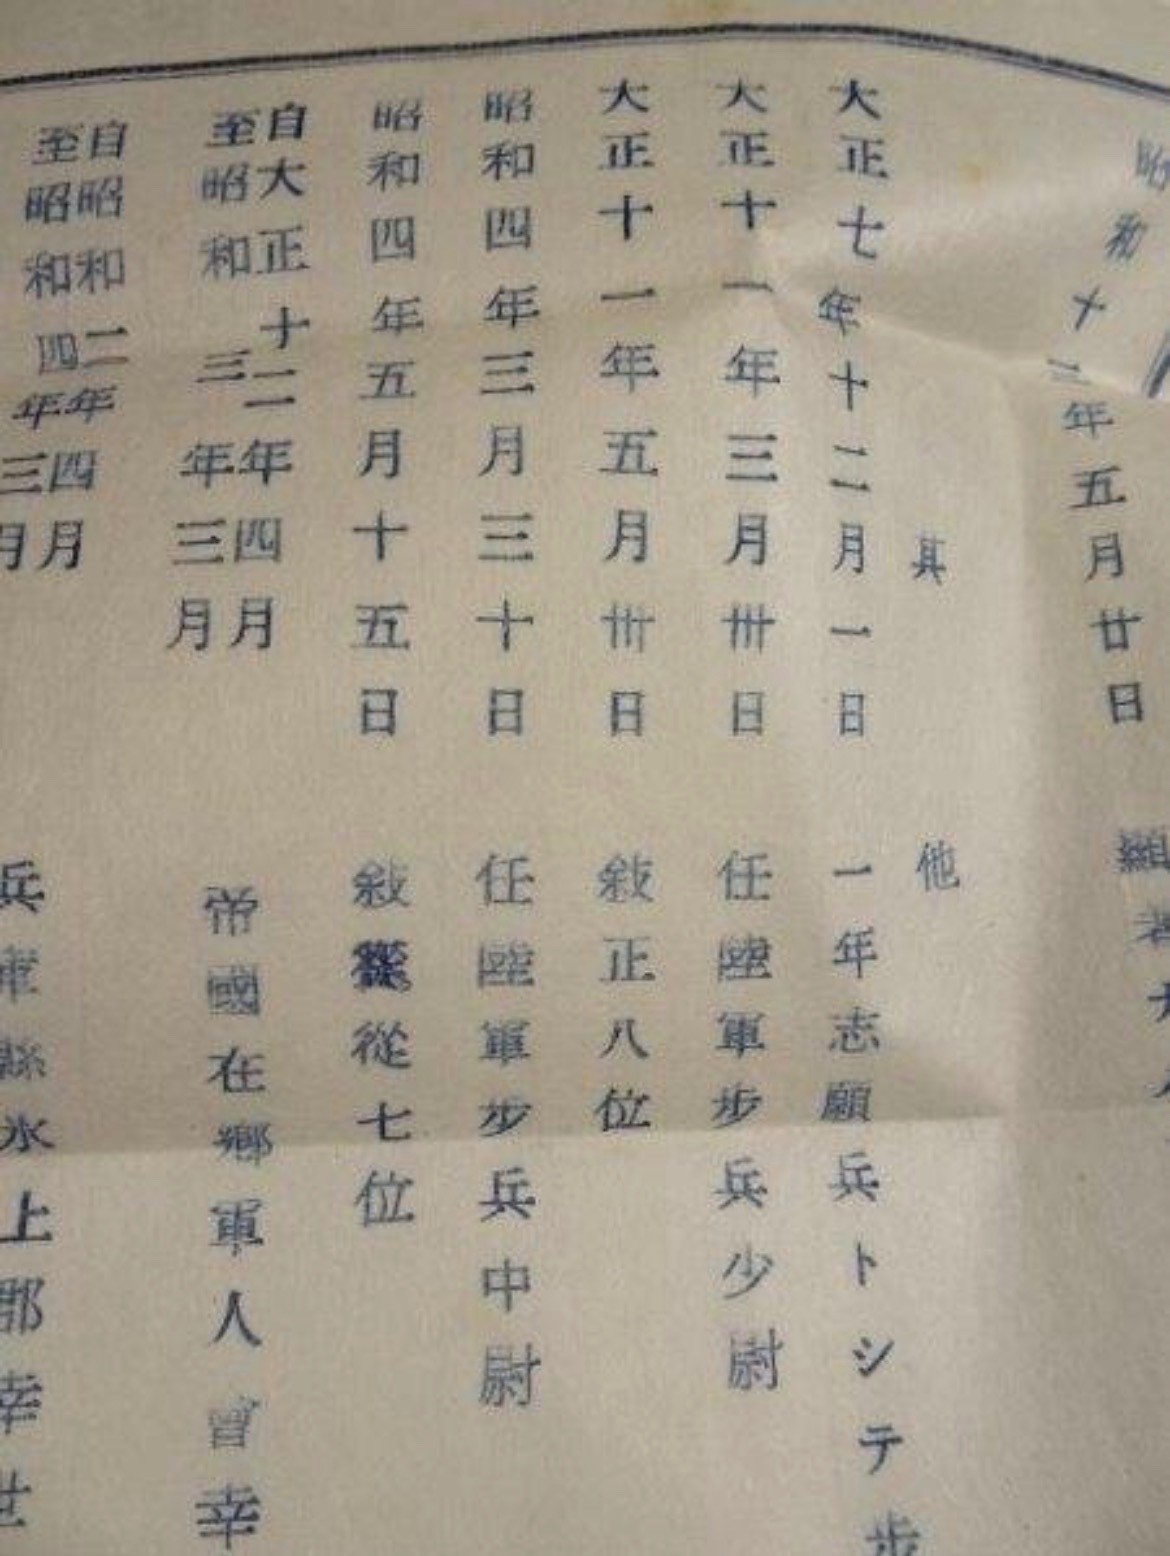 昭和十二年五月廿日 顯著ナル
其他
大正七年十二月一日 一年志願兵トシテ步
大正十一年三月卅日 任陸軍步兵少尉
大正十一年五月卅日 敍正八位
昭和四年三月三十日 任陸軍步兵中尉
昭和四年五月十五日 敍從七位
自大正十二年四月
至昭和三年三月
帝國在鄕軍人會幸
自昭和二年四月
至昭和四年三月
兵庫縣氷上郡幸世